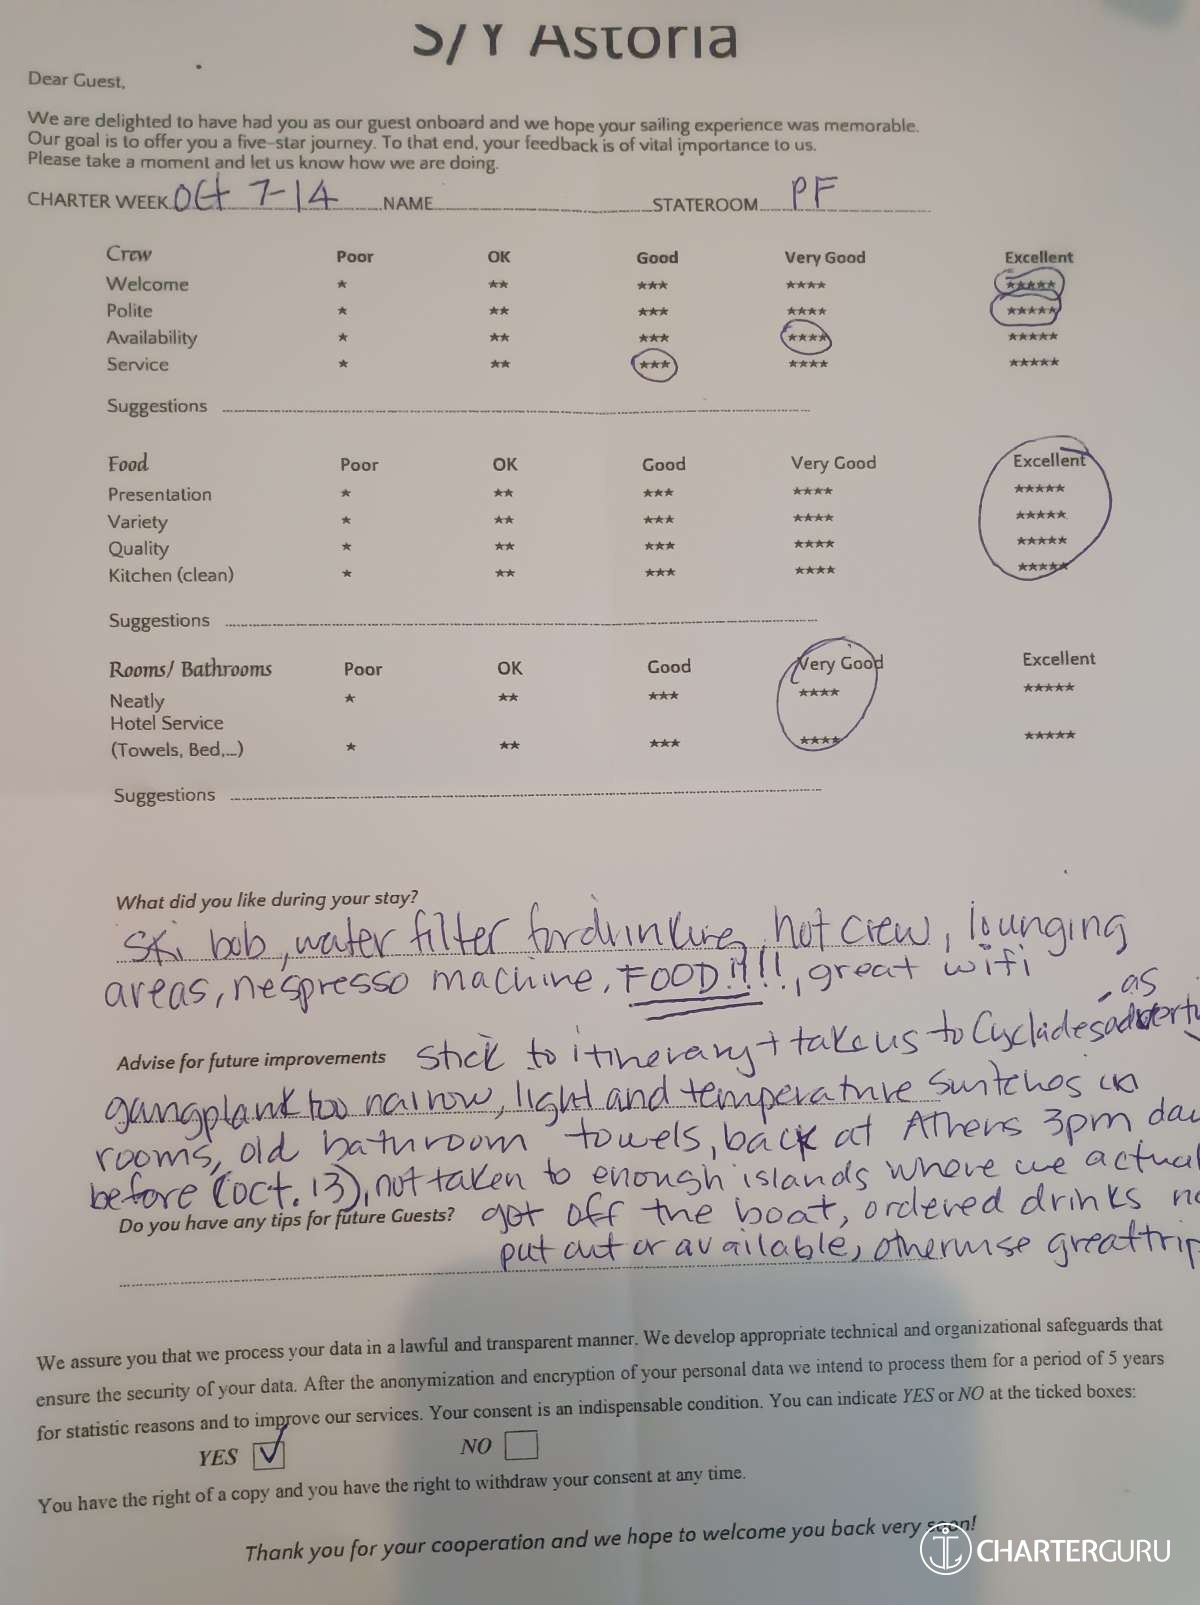 S/Y Astoria
Dear Guest,
We are delighted to have had you as our guest onboard and we hope your sailing experience was memorable.
Our goal is to offer you a five-star journey. To that end, your feedback is of vital importance to us.
Please take a moment and let us know how we are doing.
CHARTER WEEK Oct 7-14 NAME STATEROOM PF
Crew Poor OK Good Very Good Excellent
Welcome * ** *** **** *****
Polite * ** *** **** *****
Availability * ** *** **** *****
Service * ** *** **** *****
Suggestions
Food Poor OK Good Very Good Excellent
Presentation * ** *** **** *****
Variety * ** *** **** *****
Quality * ** *** **** *****
Kitchen (clean) * ** *** **** *****
Suggestions
Rooms/ Bathrooms Poor OK Good Very Good Excellent
Neatly * ** *** **** *****
Hotel Service
(Towels, Bed,...) * ** *** **** *****
Suggestions
What did you like during your stay?
Ski bob, water filter for drinking, hot crew, lounging
areas, nespresso machine, FOOD!!!!, great wifi
, as
Advise for future improvements stick to itinerary + take us to Cyclades
gangplank too narrow, light and temperature switches in
rooms, old bathroom towels, back at Athens 3pm day
before (Oct. 13), not taken to enough islands where we
Do you have any tips for future Guests? got off the boat, ordered drinks
put out or available, otherwise great trip
We assure you that we process your data in a lawful and transparent manner. We develop appropriate technical and organizational safeguards that
ensure the security of your data. After the anonymization and encryption of your personal data we intend to process them for a period of 5 years
for statistic reasons and to improve our services. Your consent is an indispensable condition. You can indicate YES or NO at the ticked boxes:
YES NO
You have the right of a copy and you have the right to withdraw your consent at any time.
Thank you for your cooperation and we hope to welcome you back very soon!
CHARTERGURU